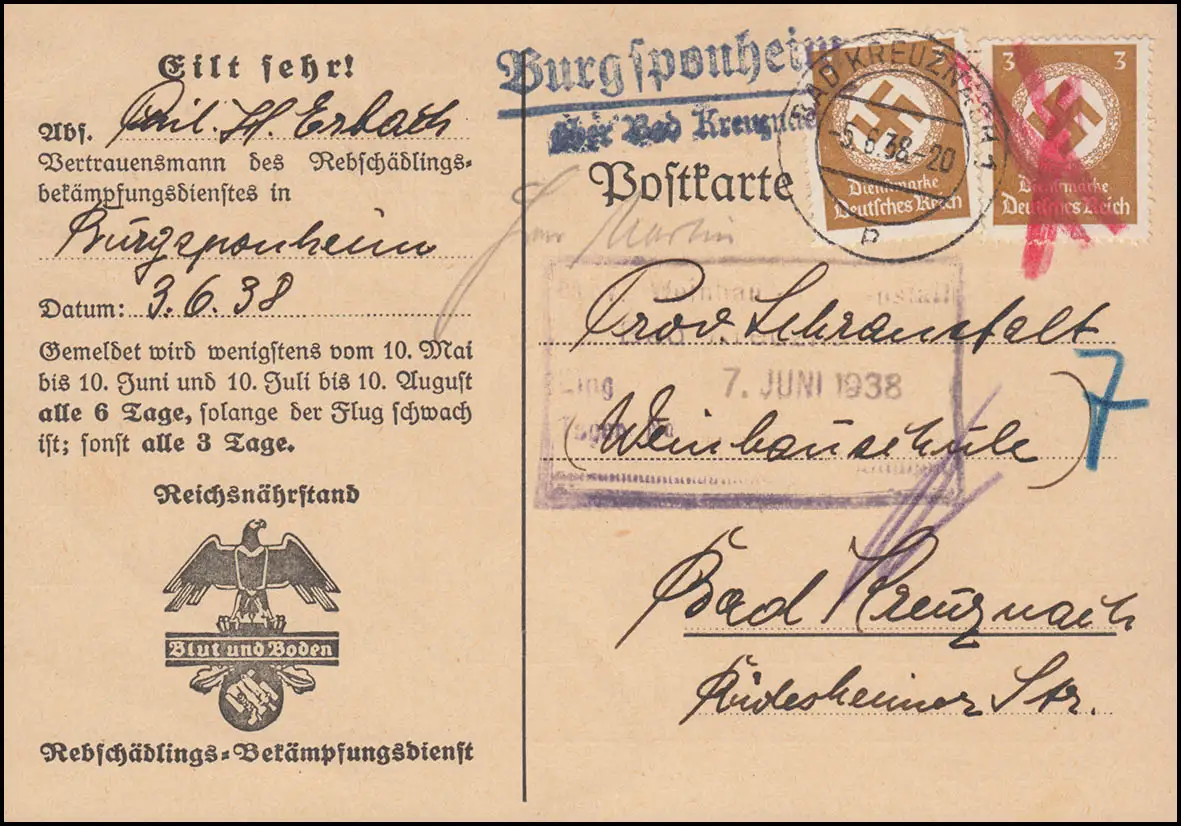 Eilt sehr!
Abs. Phil. H. Erbach
Vertrauensmann des Rebschädlings-
bekämpfungsdienstes in
Burgsponheim
Datum: 3.6.38
Gemeldet wird wenigstens vom 10. Mai
bis 10. Juni und 10. Juli bis 10. August
alle 6 Tage, solange der Flug schwach
ist; sonst alle 3 Tage.
Reichsnährstand
Blut und Boden
Rebschädlings-Bekämpfungsdienst
Burgsponheim
über Bad Kreuznach
Postkarte
BAD KREUZNACH 1
-5.6.38.-20
3
Dienstmarke
Deutsches Reich
3
3
Dienstmarke
Deutsches Reich
Herr Martin
Weinbau
Prov Lehranstalt
Eing
7. JUNI 1938
(Weinbauschule)
7
Bad Kreuznach
Rüdesheimer Str.